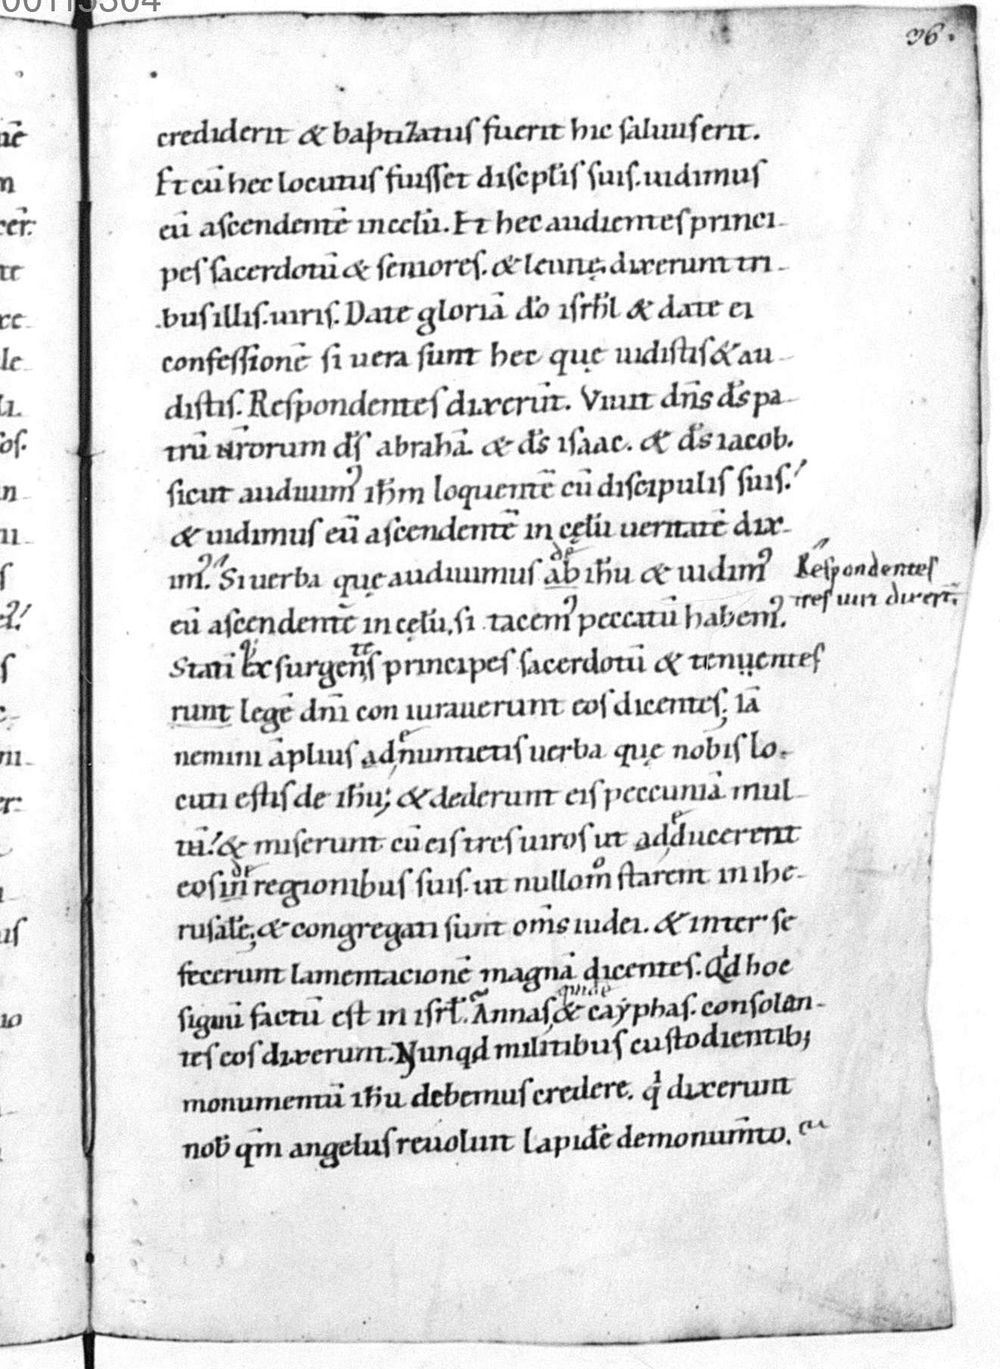 00115304
36.
crediderit & baptizatus fuerit hic saluus erit.
Et cū hec locutus fuisset discipłis suis. uidimus
eū ascendentē in celū. Et hec audientes princi-
pes sacerdotū & seniores. & leuitę, dixerunt tri-
bus illis. uiris. Date gloriā do isrhl & date ei
confessionē si uera sunt hec quę uidistis & au-
distis. Respondentes dixerūt. Viuit dn̄s ds pa-
trū ur̄orum ds abrahā. & ds isaac. & ds iacob.
sicut audiuim᾿ ihm̄ loquentē cū discipulis suis.
& uidimus eū ascendentē in cęlū ueritatē dix-
im᾿. Si uerba quę audiuimus ab de ihu & uidim᾿
Respondentes
tres uiri dixert̄.
eū ascendentē in cęlū, si tacem᾿ peccatū habem᾿.
Statī Exsurgentes principes sacerdotū & tenuentes
runt legē dnī coniurauerunt eos dicentes; Iā
nemini āplius adnuntietis uerba quę nobis lo-
cuti estis de ihu; & dederunt eis peccuniā mul-
tā! & miserunt cū eis tres uiros ut adducerent
eos in de regionibus suis. ut nullom̊ starent in ihe-
rusałe; & congregati sunt oms iudei. & inter se
fecerunt lamentacionē magnā dicentes. Qd hoc
signū factū est in isrł. Annas quidē & cayphas. consolan-
tes eos dixerunt. Nunqd militibus custodientib;
monumentū ihu debemus credere. q dixerunt
nob qm̄ angelus reuoluit lapidē de monum̄to. cu